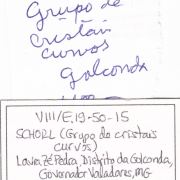 Grupo de
cristais
curvos
Golconda
VIII/E,19-50-15
SCHORL (Grupo de cristais
curvos)
Lavra Zé Pedro, Distrito da Golconda,
Governador Valadares, MG